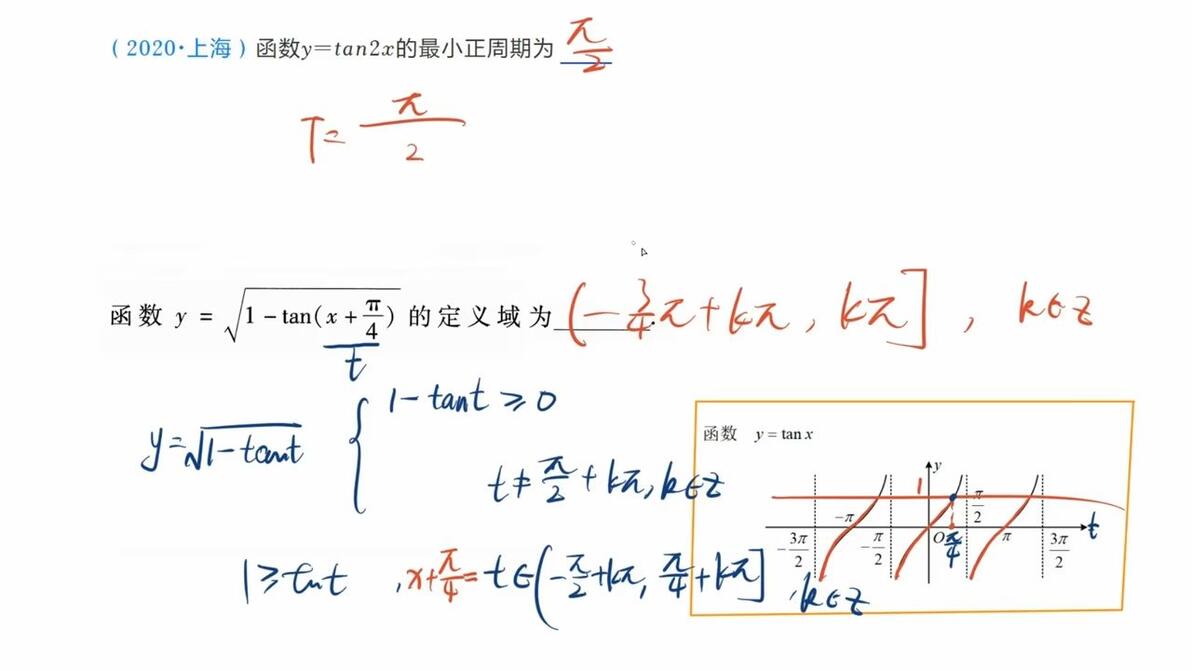 （2020·上海）函数y=tan2x的最小正周期为 π/2
T= π/2
函数 y = √(1-tan(x+π/4)) 的定义域为 (-3/4π+kπ, kπ], k∈Z
t
1-tant≥0
y=√(1-tant)
t≠π/2+kπ,k∈Z
1≥tant ,x+π/4=t∈(-π/2+kπ, π/4+kπ] ,k∈Z
函数 y=tan x
y
1
-π π/2
-3π/2 -π/2 O π/4 π 3π/2 t